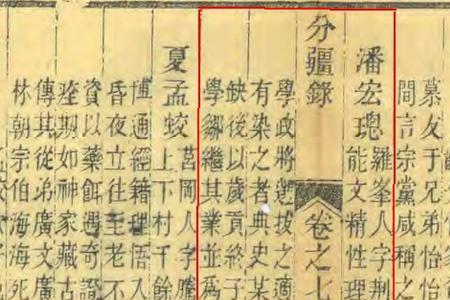 慕友于兄弟怡怡
間言宗黨咸稱之
潘宏璁羅峯人字荆
能文精性理
分疆錄 卷之七
學政將選拔之適
有染之者典史某
缺後以歲貢終子
學鄒繼其業並
夏孟蛟莒岡人字騰
上下村千餘
博通經籍理悟入
昏夜立往至老不
資以藥餌遇奇證
痊期如神家藏古
傳其從弟廣文廣
林朝宗伯海海死